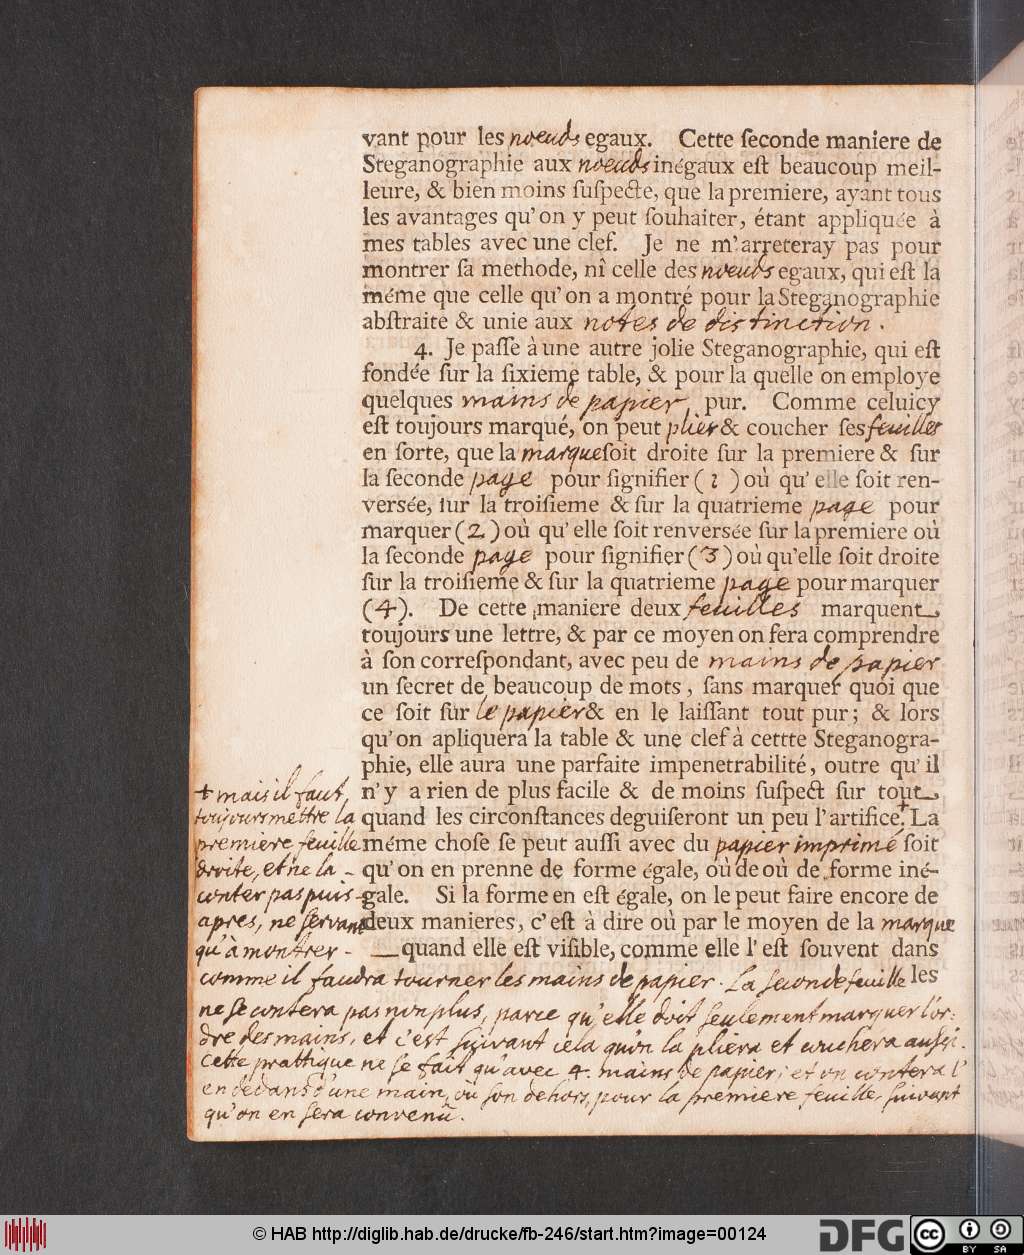 vant pour les nœuds egaux. Cette ſeconde maniere de
Steganographie aux nœuds inégaux eſt beaucoup meil-
leure, & bien moins ſuſpecte, que la premiere, ayant tous
les avantages qu'on y peut ſouhaiter, étant appliquée à
mes tables avec une clef. Je ne m'arreteray pas pour
montrer ſa methode, nî celle des nœuds egaux, qui eſt la
méme que celle qu'on a montré pour la Steganographie
abſtraite & unie aux notes de distinction.
4. Je paſſe à une autre jolie Steganographie, qui eſt
fondée ſur la ſixieme table, & pour la quelle on employe
quelques mains de papier pur. Comme celuicy
eſt toujours marqué, on peut plier & coucher ſes feuilles
en ſorte, que la marque ſoit droite ſur la premiere & ſur
la ſeconde page pour ſignifier (1) où qu'elle ſoit ren-
verſée, ſur la troiſieme & ſur la quatrieme page pour
marquer (2) où qu'elle ſoit renversée ſur la premiere où
la ſeconde page pour ſignifier (3) où qu'elle ſoit droite
ſur la troiſieme & ſur la quatrieme page pour marquer
(4). De cette maniere deux feuilles marquent
toujours une lettre, & par ce moyen on fera comprendre
à ſon correſpondant, avec peu de mains de papier
un ſecret de beaucoup de mots, ſans marquer quoi que
ce ſoit ſur le papier & en le laiſſant tout pur; & lors
qu'on apliquera la table & une clef à cettte Steganogra-
phie, elle aura une parfaite impenetrabilité, outre qu'il
n'y a rien de plus facile & de moins ſuſpect ſur tout
quand les circonſtances deguiſeront un peu l'artifice.+ La
méme choſe ſe peut auſſi avec du papier imprimé ſoit
qu'on en prenne de forme égale, où de où de forme iné-
gale. Si la forme en eſt égale, on le peut faire encore de
deux manieres, c'eſt à dire où par le moyen de la marque
quand elle eſt viſible, comme elle l'eſt ſouvent dans
les
+ mais il faut
toujours mettre la
premiere feuille
droite, et ne la
conter pas puis
apres, ne servant
qu'à montrer
comme il faudra tourner les mains de papier. La seconde feuille
ne se contera pas non plus, parce qu'elle doit seulement marquer l'or:
dre des mains, et c'est suivant cela qu'on la pliera et couchera aussi.
Cette prattique ne se fait qu'avec 4. mains de papier; et on contera l'
en dedans d'une main, où son dehors, pour la premiere feuille, suivant
qu'on en sera convenu.
© HAB http://diglib.hab.de/drucke/fb-246/start.htm?image=00124
DFG
cc
BY SA